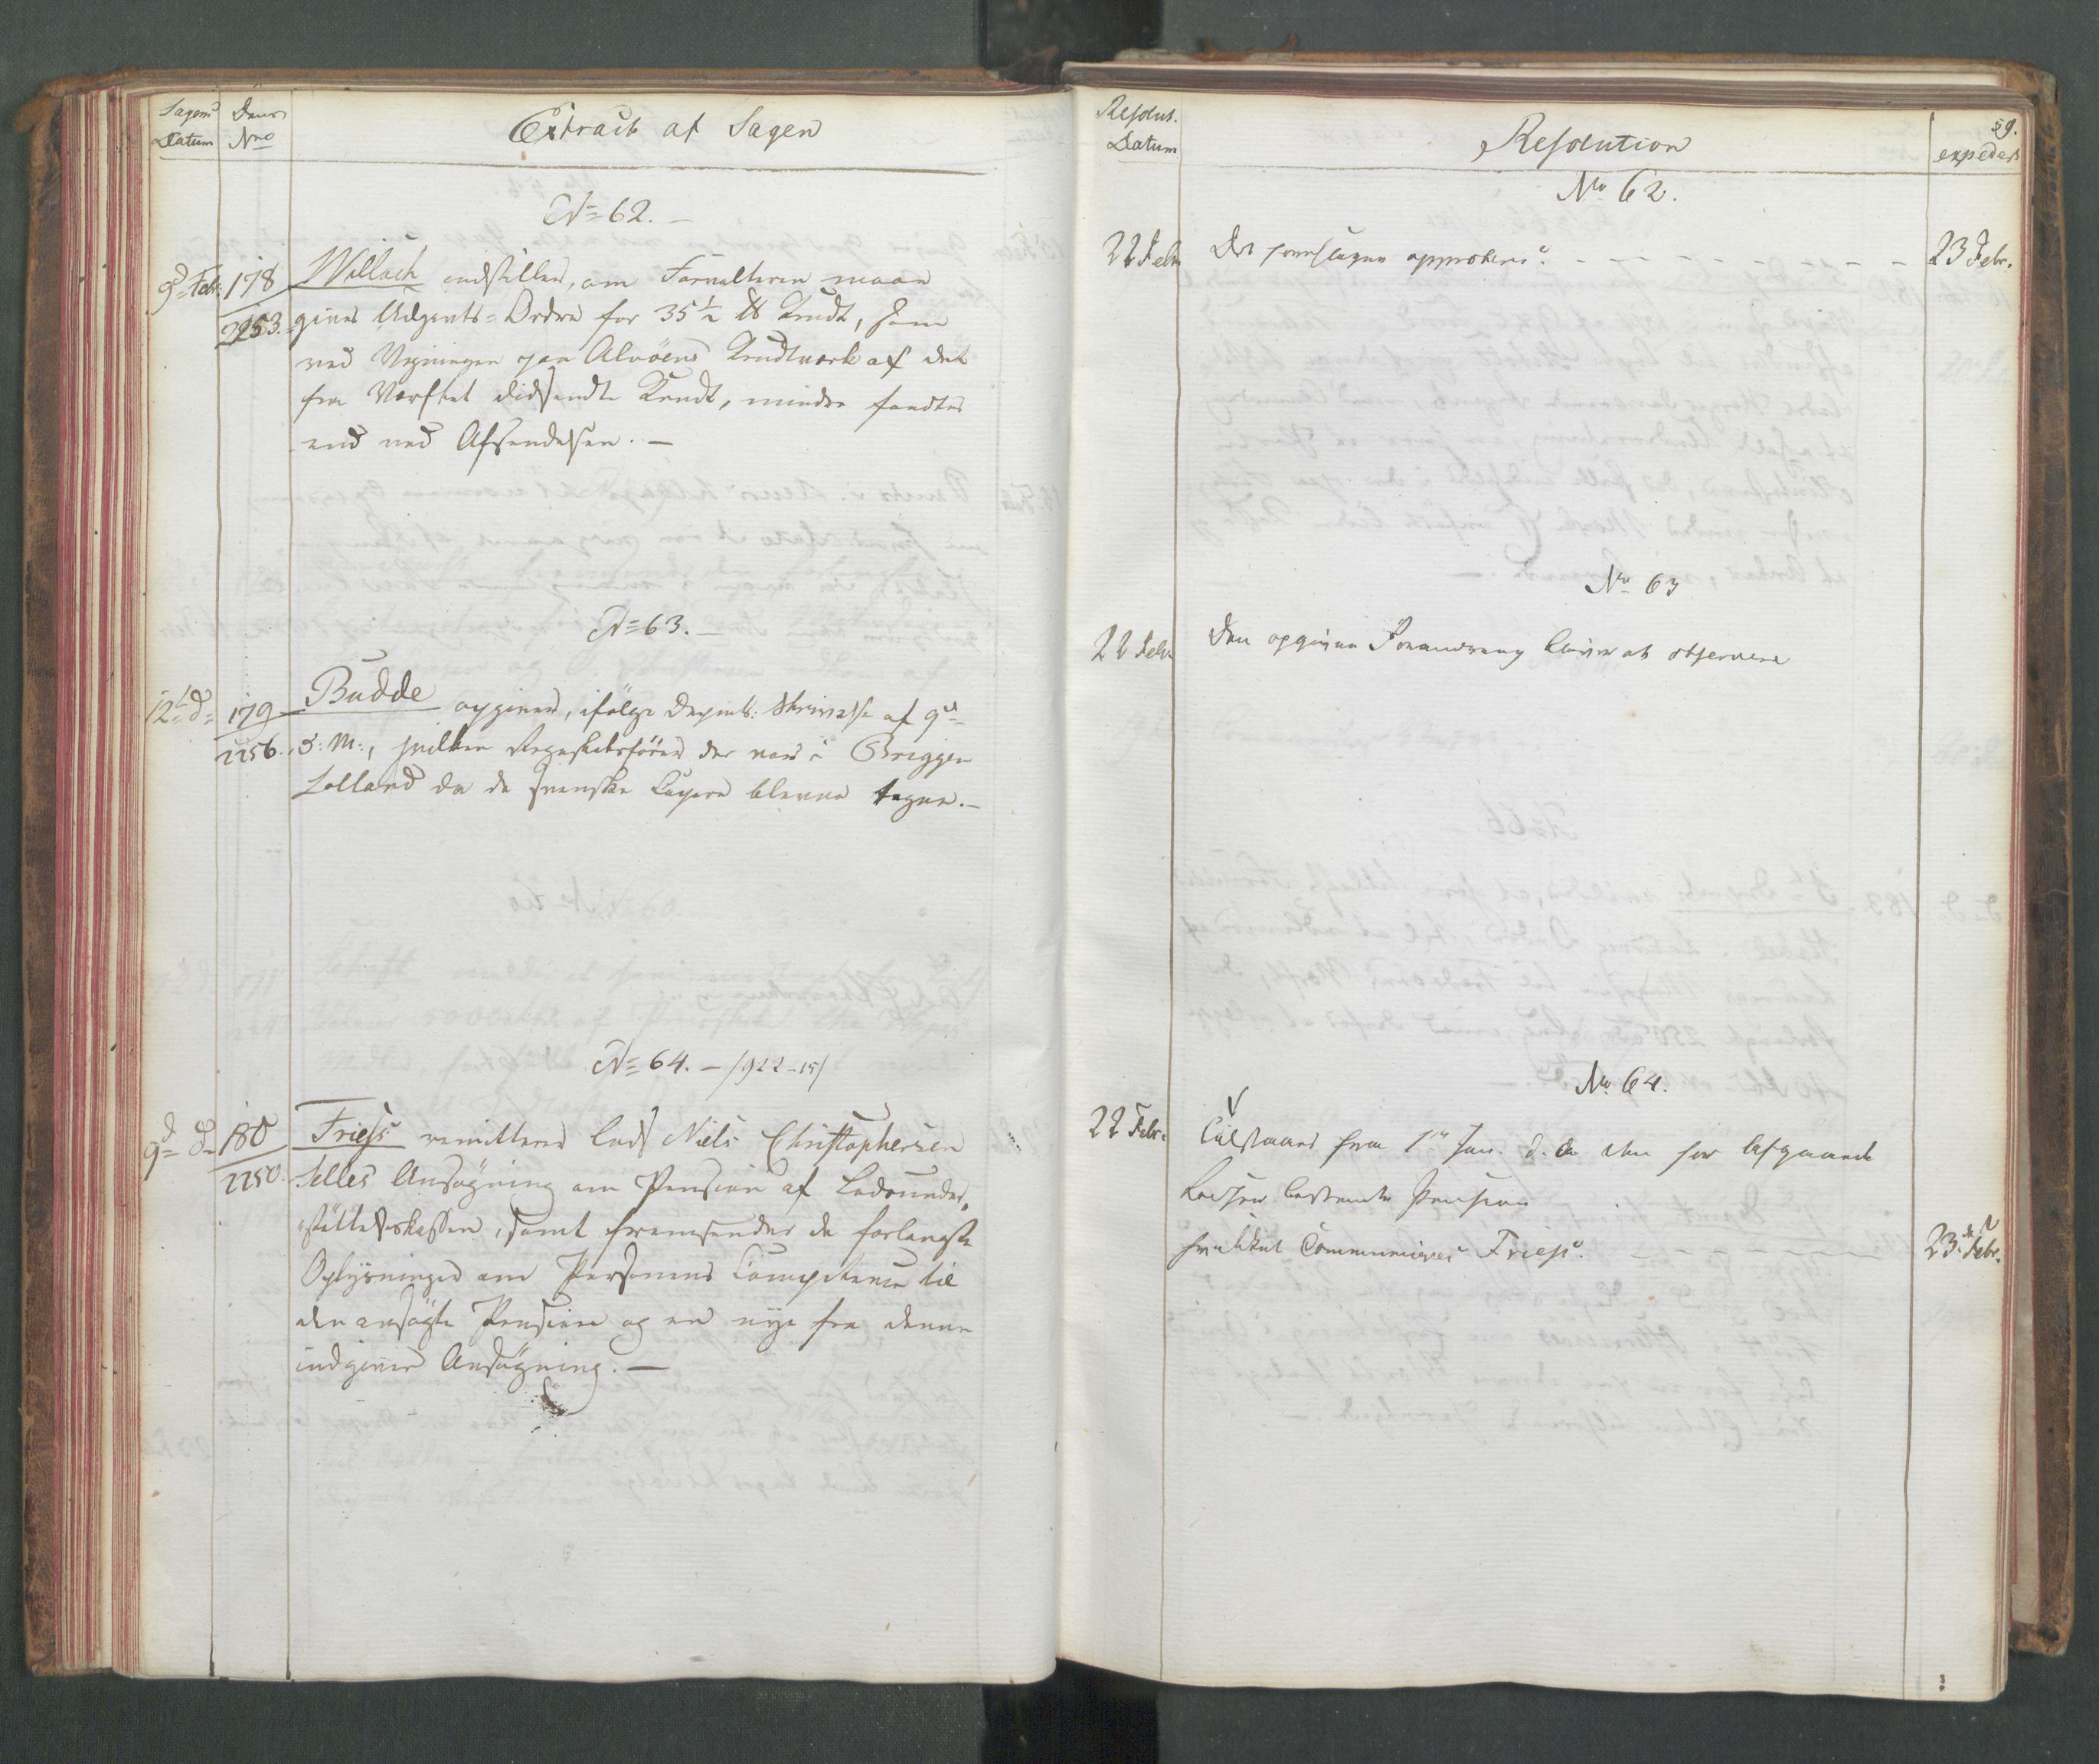 Sagens Datum
Dens Nro
Extract af Sagen
No 62. –
9d Febr.
178
2253.
Willoch indstiller, om Forvalteren maae
gives Udgivts-Ordre for 35 1/2 ℔ Krudt, som
ved Vegningen paa Alvöens Krudtverk af det
fra Værftet didsendte Krudt, mindre fandtes
end ved Afsendelsen. –
No 63. –
12te d=
179
2256.
Budde opgiver, ifölge Depart: Skrivelse af 9de
d: M:, hvilken Regnskabsförer der var i Briggen
Lolland da de svenske Capere bleve tagne. –
No 64. – /922–15/
9d d=
180
2250.
Friess remitterer Lods Niels Christophersen
Selles Ansögning om Pension af Lodsunder-
"stöttelseskassen, samt fremsender de forlangte
Oplysninger om Personens Competence til
den ansögte Pension og en nye fra denne
indgiven Ansögning. –
59.
Resolut. Datum
Resolution
expederet
No 62.
22 Febr
Det foreslagne approberes. – – – – – – – – –
23 Febr.
No 63
22 Febr
Den opgivne Forandring bliver at observere
No 64.
22 Febr.
Tilstaaes fra 1ste Jan. d. A. den for afgaaende
Lodser bestemte Pension
hvilket Communiceres Friess. – – – –
23de Febr.